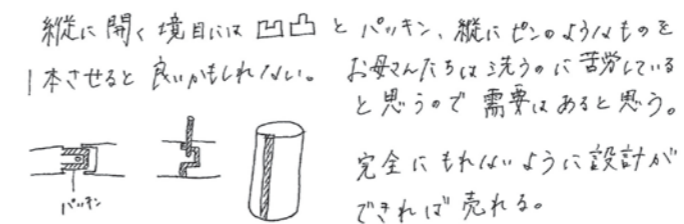 縦に開く境目には凹凸とパッキン、縦にピンのようなものを
1本させると良いかもしれない。お母さんたちは洗うのに苦労している
と思うので需要はあると思う。
完全にもれないように設計が
できれば売れる。
パッキン